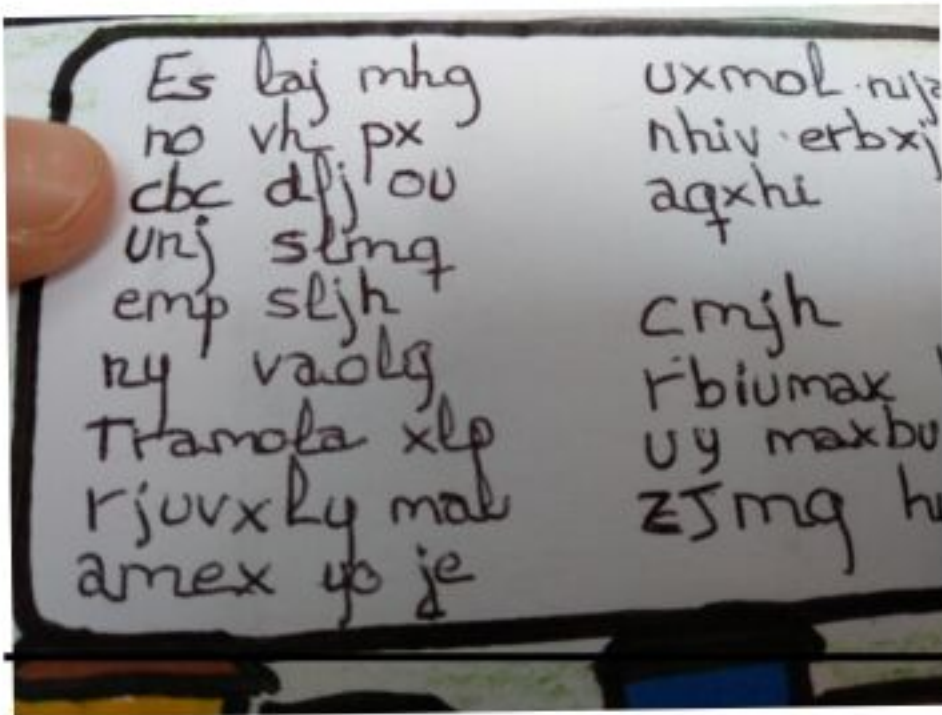 Es laj mhg
no vh px
cbc dfj ou
unj slmq
emp sljh
ny vaolg
Tramola xlp
rjuvxly mal
amex yo je
uxmol
nhiv erbxj
aqxhi
cmjh
rbiumax
uy maxbu
zJmq